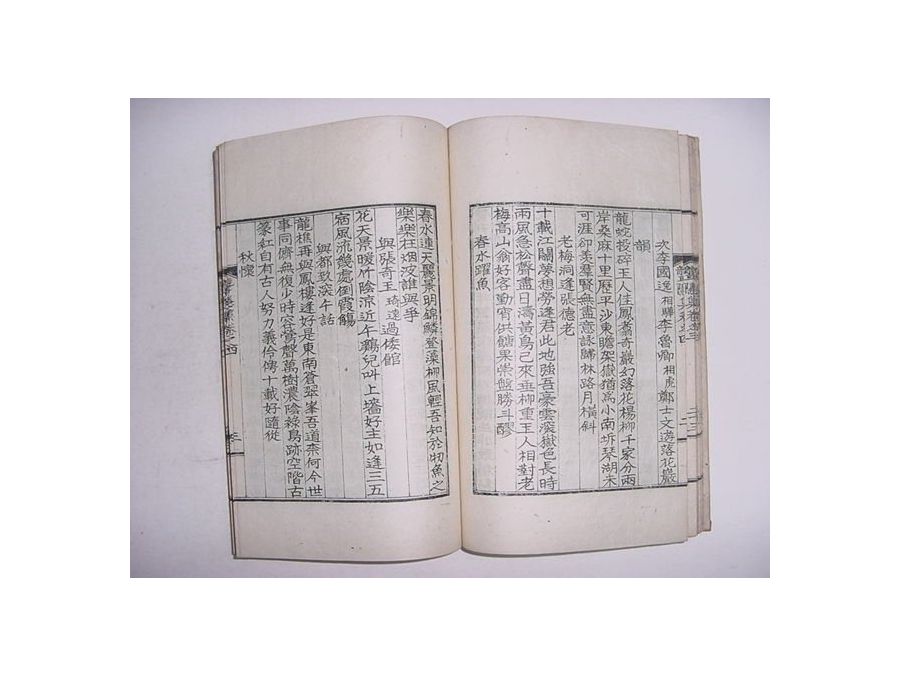 次李國逸相聯李魯卿相虎鄭士文遊落花巖
韻
龍蛇投碎王人佳鳳翥奇巖幻落花楊柳千家分兩
岸桑麻十里歷平沙東瞻架嶽猶高小南坼琴湖未
可涯卻羨羣賢無盡意詠歸林路月橫斜
老梅洞逢張德老
十載江關夢想勞逢君此地強吾豪雲深嶽色長時
雨風急松聲盡日濤黃鳥已來垂柳重王人相對老
梅高山翁好客勤官供饍果柴盤勝斗醪
春水躍魚
春水連天麗景明錦鱗登藻柳風輕吾知於牣魚之
樂樂在烟波誰與爭
與張奇玉琦遠過倭館
花天景暖竹陰涼近午鷄兒叫上墻好主如逢三五
宿風流幾處倒霞觴
與都致淡午話
龍樵再與鳳樓逢好是東南蒼翠峯吾道奈何今世
事同儕無復少時容鶯聲萬樹濃陰綠鳥跡空階古
篆紅自有古人努力義伶俜十載好隨從
秋懷
卷之四
三